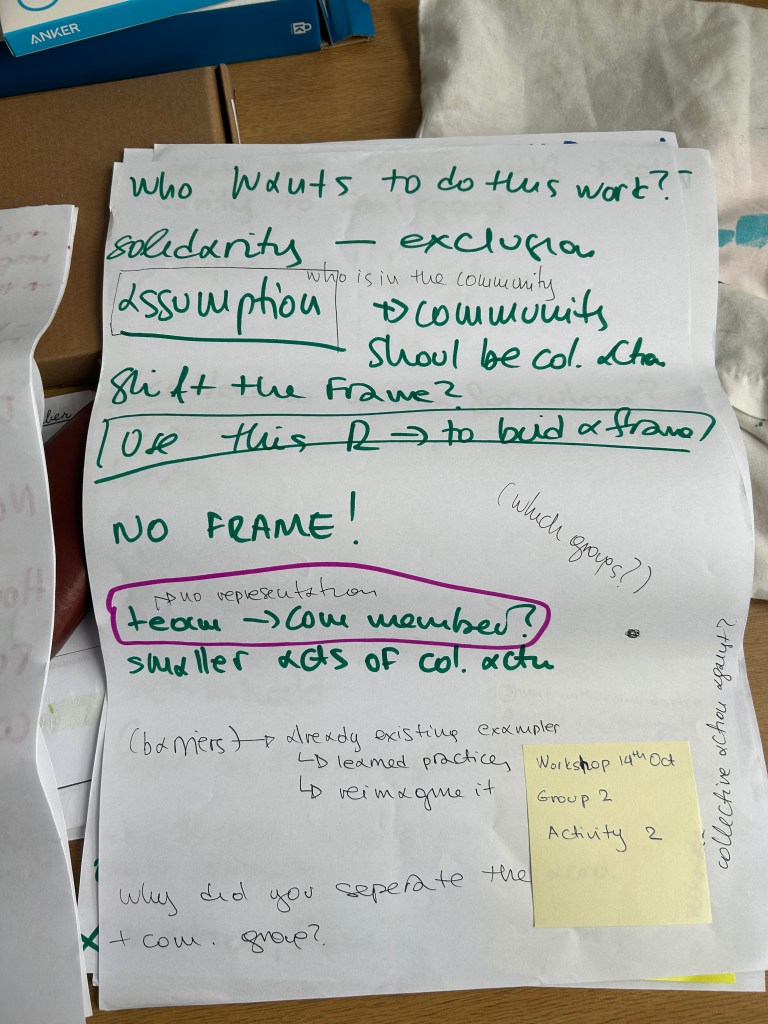 ANKER
who wants to do this work?
solidarity — exclusion
who is in the community
assumption
↳ community
shoul be col. actio
shift the Frame?
Use this R → to buid a frame
NO FRAME!
(which groups?)
↳ no representation
team → com member?
smaller acts of col. actn
collective action against?
(barriers) → already existing exampler
↳ learned practices
↳ reimagine it
Workshop 14th Oct
Group 2
Activity 2
Why did you seperate the
+ com. group?